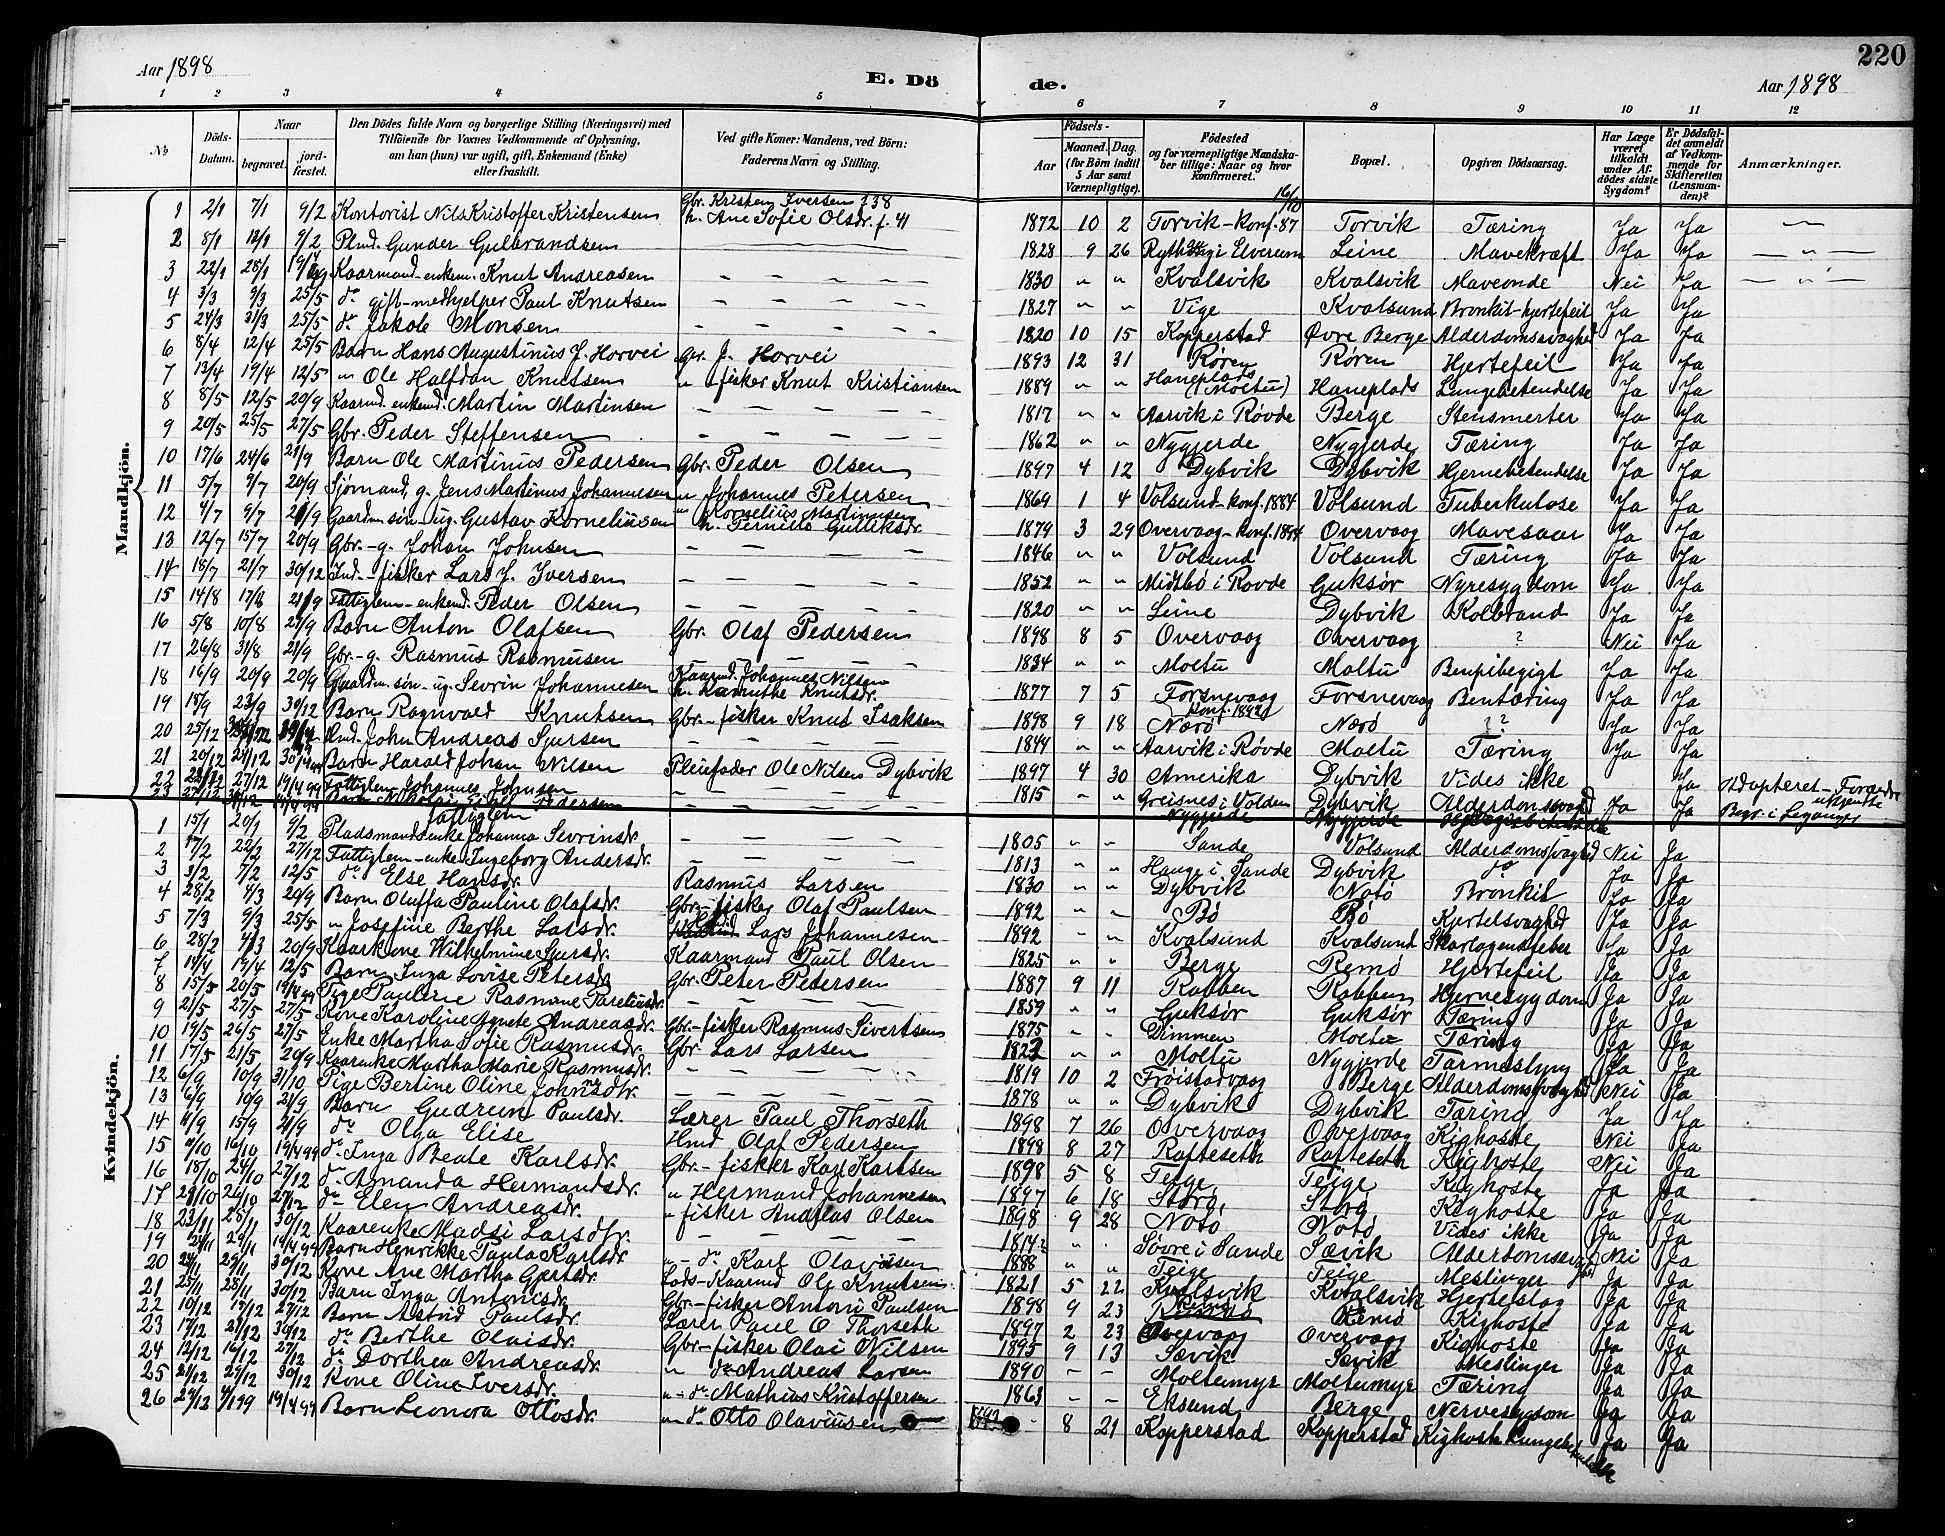 Aar 1898
E. Dö
de.
Aar 1898
220
1 2 3 4 5 6 7 8 9 10 11 12
No
Döds-Datum.
Naar
begravet.
jord-fæstet.
Den Dödes fulde Navn og borgerlige Stilling (Næringsvei) med Tilföiende för Voxnes Vedkommende af Oplysning, om han (hun) var ugift, gift, Enkemand (Enke) eller fraskilt.
Ved gifte Koner: Mandens, ved Börn: Faderens Navn og Stilling.
Födsels-
Aar
Maaned. Dag.
(for Börn indtil 5 Aar samt Værnepligtige).
Födested og for værnepligtige Mandskaber tillige: Naar og hvor konfirmeret.
Bopæl.
Opgiven Dödsaarsag.
Har Læge været tilkaldt under Afdödes sidste Sygdom?
Er Dödsfaldet anmeldt af Vedkommende for Skifteretten (Lensmanden)?
Anmærkninger.
Mandkjön.
1 2/1 7/1 9/2 Kontorist Nils Kristoffer Kristensen Gbr. Kristen Iversen f. 38 h. Ane Sofie Olsdr. f. 41 1872 10 2 Torvik - konf. 16/10 87 Torvik Tæring Ja Ja
2 8/1 12/1 9/2 Plmd. Gunder Gulbrandsen 1828 9 26 i Elverum Leine Mavekræft Ja Ja
3 22/1 28/1 Kaarmand - enkem. Knut Andreasen 1830 " " Kvalsvik Kvalsvik Maveonde Nei Ja
4 3/3 9/3 25/5 do gift - medhjelper Paul Knutsen 1827 " " Vige Kvalsund Bronkit - hjertefeil Ja Ja
5 24/3 31/3 25/5 do Jakob Monsen 1820 10 15 Kopperstad Øvre Berge Alderdomssvaghed Ja Ja
6 8/4 12/4 25/5 Barn Hans Augustinus J. Horvei Gbr. J. Horvei 1893 12 31 Røren Røren Hjertefeil Ja Ja
7 13/4 19/4 12/5 " Ole Halfdan Knutsen " fisker Knut Kristiansen 1889 " " Haneplads (Moltu) Haneplads Lungebetendelse Ja Ja
8 8/5 12/5 20/9 Kaarmd. enkemd. Martin Martinsen 1817 " " Aarvik i Røvde Berge Stensmerter Ja Ja
9 20/5 25/5 27/5 Gbr. Peder Steffensen 1862 " " Nygjerde Nygjerde Tæring Ja Ja
10 17/6 24/6 21/9 Barn Ole Martinus Pedersen Gbr. Peder Olsen 1897 4 12 Dybvik Dybvik Hjernebetendelse Ja Ja
11 5/7 9/7 20/9 Sjömand, g. Jens Martinus Johannesen " Johannes Petersen 1869 1 4 Volsund - konf. 1884 Volsund Tuberkulose Ja Ja
12 4/7 9/7 21/9 Gaardm. søn - ug. Gustav Korneliusen " Kornelius Martinusen h. Pernille Gulliksdr. 1879 3 29 Overvaag - konf. 1894 Overvaag Mavesaar Ja Ja
13 12/7 15/7 20/9 Gbr. - g. Johan Johnsen 1846 " " Volsund Volsund Tæring Ja Ja
14 18/7 21/7 30/12 Ind. - fisker Lars J. Iversen 1852 " " Midtbø i Rovde Guksør Nyresygdom Ja Ja
15 14/8 17/8 21/9 Fattiglem - enkemd. Peder Olsen 1820 " " Leine Dybvik Kolbrand Ja Ja
16 5/8 10/8 21/9 Barn Anton Olafsen Gbr. Olaf Pedersen 1898 8 5 Overvaag Overvaag ? Nei Ja
17 26/8 31/8 21/9 Gbr. - g. Rasmus Rasmusen 1834 " " Moltu Moltu Ja Ja
18 16/9 20/9 20/9 Gaardm. søn - ug. Sevrin Johannesen Kaarmd. Johannes Nilsen h. Knutsdr. 1877 7 5 Forsnevaag konf. 1892 Forsnevaag Bentæring Ja Ja
19 18/9 23/9 30/12 Barn Ragnvald Knutsen Gbr. - fisker Knud Isaksen 1898 9 18 Nærø Nærø ? Ja Ja
20 25/12 Johan Andreas Sjursen 1844 " " Aarvik i Røvde Moltu Tæring Ja Ja
21 20/12 27/12 30/4 99 Barn Harald Johan Nilsen Pleiefader Ole Nilsen Dybvik 1897 4 30 Amerika Dybvik Vides ikke Ja Adopteret - Forældre ukjendte
22 22/12 27/12 19/4 99 Fattiglem Johannes Johnsen 1815 " " Greisnes i Volden Dybvik Alderdomssvagh. Ja Ja Begr. i Leganger
23 Pedersen Nygjerde Nygjerde
Kvindekjön.
1 15/1 20/1 9/2 Pladsmandsenke Johanna Sevrinsdr. fattiglem 1805 " " Sande Volsund Alderdomssvaghed Nei Ja
2 17/2 22/2 27/12 Fattiglem - enke Ingeborg Andersdr. 1813 " " Hauge i Sande Dybvik do Ja Ja
3 3/2 7/2 12/5 do Else Hansdr. Rasmus Larsen 1830 " " Dybvik Notø Bronkit Ja Ja
4 28/2 4/3 20/9 Barn Oluffa Pauline Olafsdr. Gbr. - fisker Olaf Paulsen 1892 " " Bø Bø Kjertelsvaghed Ja Ja
5 7/3 9/3 25/5 " Josefine Berthe Larsdr. Lars Johannesen 1892 " " Kvalsund Kvalsund Skarlagensfeber Ja Ja
6 28/2 4/3 20/9 Kaarkone Wilhelmine Sjursdr. Kaarmand Paul Olsen 1825 " " Berge Remø Hjertefeil Ja Ja
7 14/4 19/4 12/5 Barn Inga Lovise Petersdr. Gbr. Peter Petersen 1887 9 11 Robben Robben Hjernesygdom Ja Ja
8 15/5 20/5 19/4 99 Pige Pauline Rasmine 1859 " " Guksør Guksør Tæring Ja Ja
9 21/5 27/5 27/5 Kone Karoline Agnete Andreasdr. Gbr. - fisker Rasmus Sivertsen 1875 " " Dimmen Moltu Tæring Ja Ja
10 19/5 26/5 27/5 Enke Martha Sofie Rasmusdr. Gbr. Lars Larsen 1822 " " Moltu Nygjerde Tarmeslyng Ja Ja
11 17/5 21/5 20/9 Kaarenke Martha Marie Rasmusdr. 1819 10 2 Frøistadvaag Berge Alderdomssvaghed Nei Ja
12 6/9 10/9 31/10 Pige Bertine Oline Johnsdtr. 1878 " " Dybvik Dybvik Tæring Ja Ja
13 6/9 10/9 21/9 Barn Gudrun Paulsdr. Lærer Paul Thorseth 1898 7 26 Overvaag Overvaag Kighoste Nei Ja
14 11/9 15/9 21/9 do Olga Elise Hmd Olaf Pedersen 1898 8 27 Rafteseth Rafteseth Kighoste Nei Ja
15 11/10 16/10 19/4 99 do Inga Beate Karlsdr. Gbr. - fisker Karl Karlsen 1898 5 8 Teige Teige Kighoste Ja Ja
16 18/10 24/10 27/12 do Amanda Hermandsdr. " Hermand Johannesen 1897 6 18 Storø Storø Kighoste Ja Ja
17 21/10 26/10 27/12 do Elen Andreasdr. " fisker Andreas Olsen 1898 9 28 Notø Notø Vides ikke Ja Ja
18 23/11 28/11 30/12 Kaarenke Madsi Larsdtr. 1814 " " Søvre i Sande Sævik Alderdomssvagh. Nei Ja
19 24/11 29/11 19/4 99 Barn Henrikke Paula Karlsdr. " - do Karl Olaviusen 1888 " " Teige Teige Meslinger Ja Ja
20 24/11 29/11 30/12 Kone Ane Martha Gjertsdr. Lods - Kaarmd Ole Knutsen 1821 5 22 Kvalsvik Kvalsvik Hjerteslag Ja Ja
21 25/11 28/11 30/12 Barn Inga Antonisdr. Gbr. - fisker Antoni Paulsen 1898 9 23 Remø Remø Kighoste Ja Ja
22 10/12 17/12 27/12 Barn Astrid Paulsdr. Lærer Paul O Thorseth 1897 2 23 Overvaag Overvaag Kighoste Ja Ja
23 17/12 21/12 30/12 do Berthe Olaisdr. Gbr. - fisker Olai Nilsen 1895 9 13 Sævik Sævik Meslinger Ja Ja
24 12/12 16/12 27/12 do Dorthea Andreasdr. " do Andreas Larsen 1890 - - Moltumyr Moltumyr Tæring Ja Ja
25 21/12 29/12 30/12 Kone Oline Iversdr. " - do Mathias Kristoffersen 1863 - - Eksund Berge Nervesygdom Ja Ja
26 27/12 4/1 99 19/4 99 Barn Leonora Ottosdr. " do Otto Olaviusen 8 21 Kopperstad Kopperstad Kighoste Lungebetendelse Ja Ja